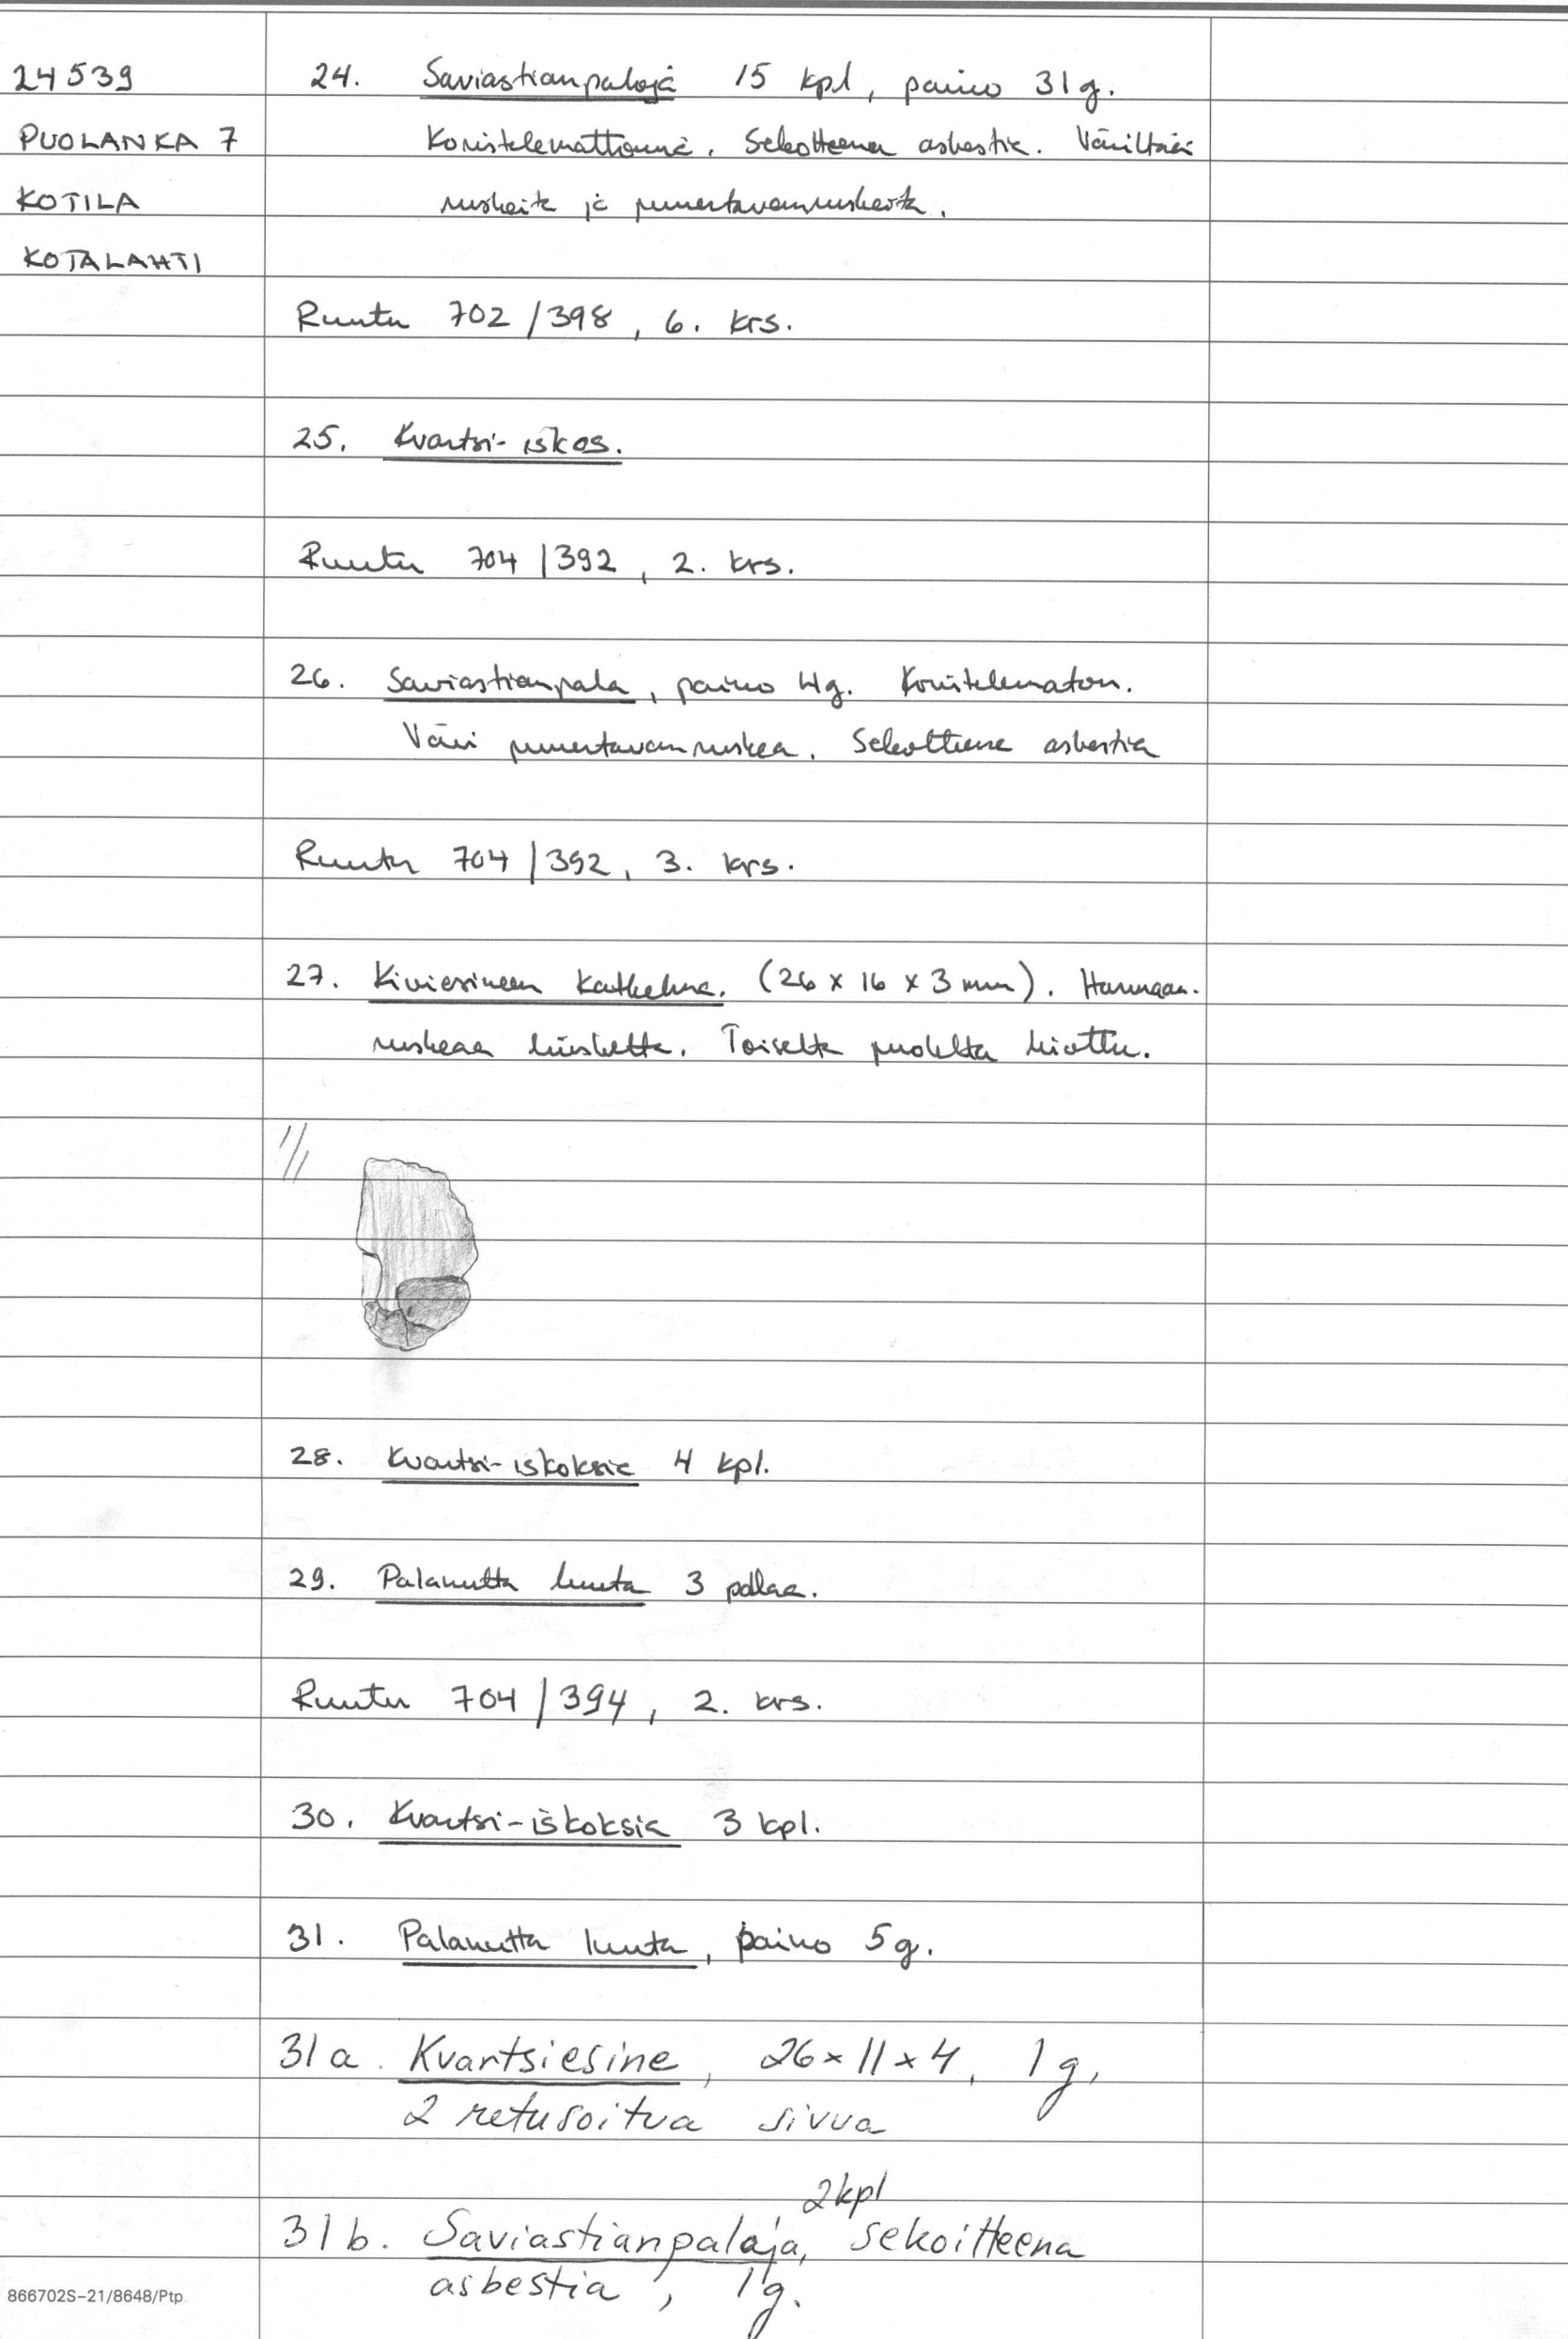 24539
PUOLANKA 7
KOTILA
KOTALAHTI
24. Saviastianpaloja 15 kpl, paino 31g.
Koristelemattomia. Sekoitteena asbestia. Väriltään
ruskeita ja punertavanruskeita.
Ruutu 702/398, 6. krs.
25. Kvartsi-iskos.
Ruutu 704/392, 2. krs.
26. Saviastianpala, paino 4g. Koristelematon.
Väri punertavanruskea. Sekoitteena asbestia
Ruutu 704/392, 3. krs.
27. Kiviesineen katkelma. (26 x 16 x 3 mm). Harmaan-
ruskeaa liusketta. Toiselta puolelta hiottu.
1/1
28. Kvartsi-iskoksia 4 kpl.
29. Palanutta luuta 3 palaa.
Ruutu 704/394, 2. krs.
30. Kvartsi-iskoksia 3 kpl.
31. Palanutta luuta, paino 5g.
31a. Kvartsiesine, 26 x 11 x 4, 1g,
2 retusoitua sivua
2kpl
31b. Saviastianpaloja, sekoitteena
asbestia, 1g.
866702S-21/8648/Ptp